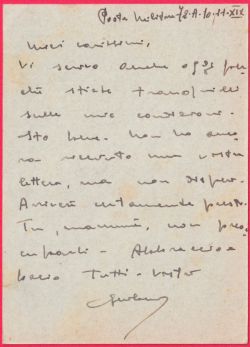 Posta Militare 78-A. 10.11.XIX
Miei carissimi,
Vi scrivo anche oggi per
chè stiate tranquilli
sulle mie condizioni.
Sto bene. Non ho anco
ra ricevuto una vostra
lettera, ma non dispero.
Arriverà certamente presto.
Tu, mammà, non preoc
cuparti. Abbraccio e
bacio tutti. Vostro